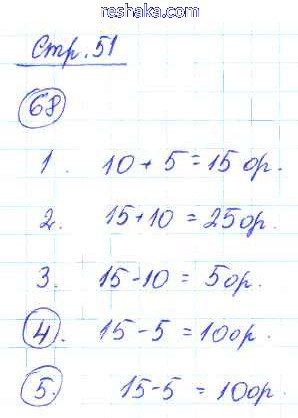 reshaka.com
Стр. 51
68
1. 10 + 5 = 15 ор.
2. 15 + 10 = 25 ор.
3. 15 - 10 = 5 ор.
4. 15 - 5 = 10 ор.
5. 15 - 5 = 10 ор.